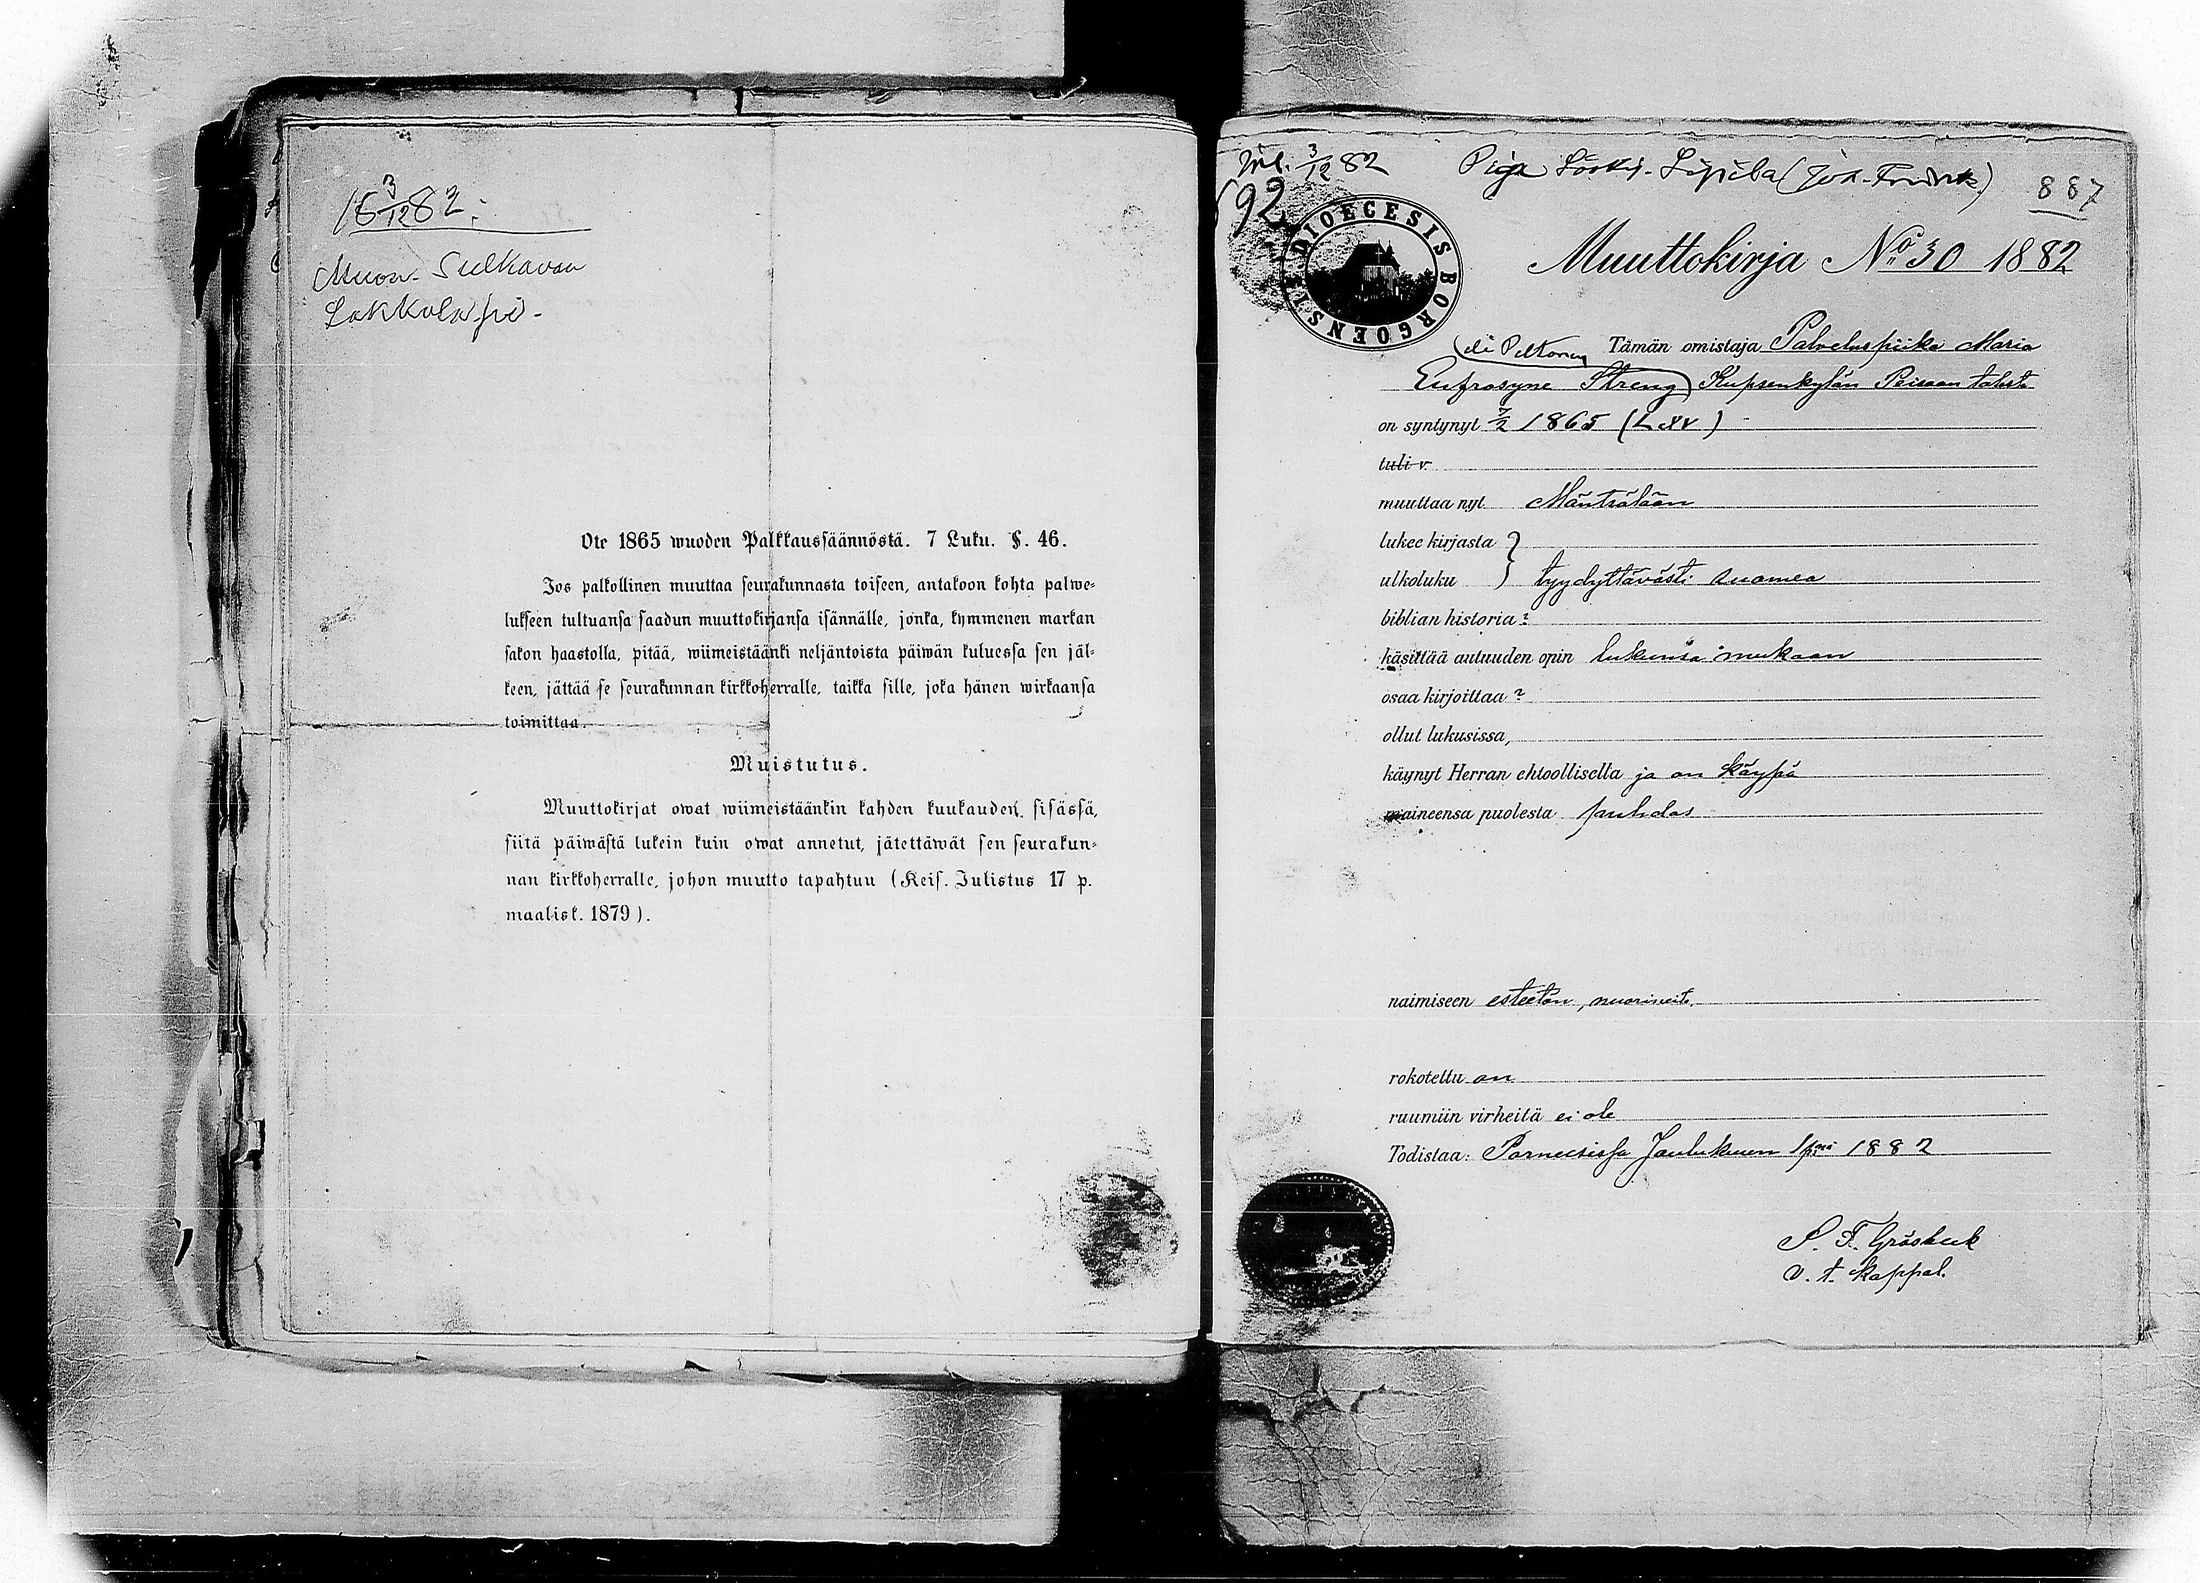 3/12 82.
Muon. Sulkavan
Ote 1865 wuoden Palkkaussäännöstä. 7 Luku. §. 46.
Jos palkollinen muuttaa seurakunnasta toiseen, antakoon kohta palwe-
lukseen tultuansa saadun muuttokirjansa isännälle, jonka, kymmenen markan
sakon haastolla, pitää, wiimeistäänki neljäntoista päiwän kuluessa sen jäl-
keen, jättää se seurakunnan kirkkoherralle, taikka sille, joka hänen wirkaansa
toimittaa.
Muistutus.
Muuttokirjat owat wiimeistäänkin kahden kuukauden, sisässä,
siitä päiwästä lukein kuin owat annetut, jätettäwät sen seurakun-
nan kirkkoherralle, johon muutto tapahtuu (Keis. Julistus 17 p.
maalisk. 1879).
Inl. 3/12 82 Piga
887
92
DIOECESIS BORGOENSIS
Muuttokirja No. 30 1882
(eli Peltonen Tämän omistaja Palveluspiika Maria
Eufrosyne Streng) Kupsenkylän talosta
on syntynyt 7/2 1865 (Lxv)
tuli v
muuttaa nyt Mäntsälään
lukee kirjasta
ulkoluku } tyydyttävästi suomea
biblian historia?
käsittää autuuden opin lukunsa mukaan
osaa kirjoittaa?
ollut lukusissa,
käynyt Herran ehtoollisella ja on käypä
maineensa puolesta puhdas
naimiseen esteetön, nuorineito.
rokotettu on
ruumiin virheitä ei ole
Todistaa: Porneesissa Joulukuun 1 p:nä 1882
v. t. kappal.